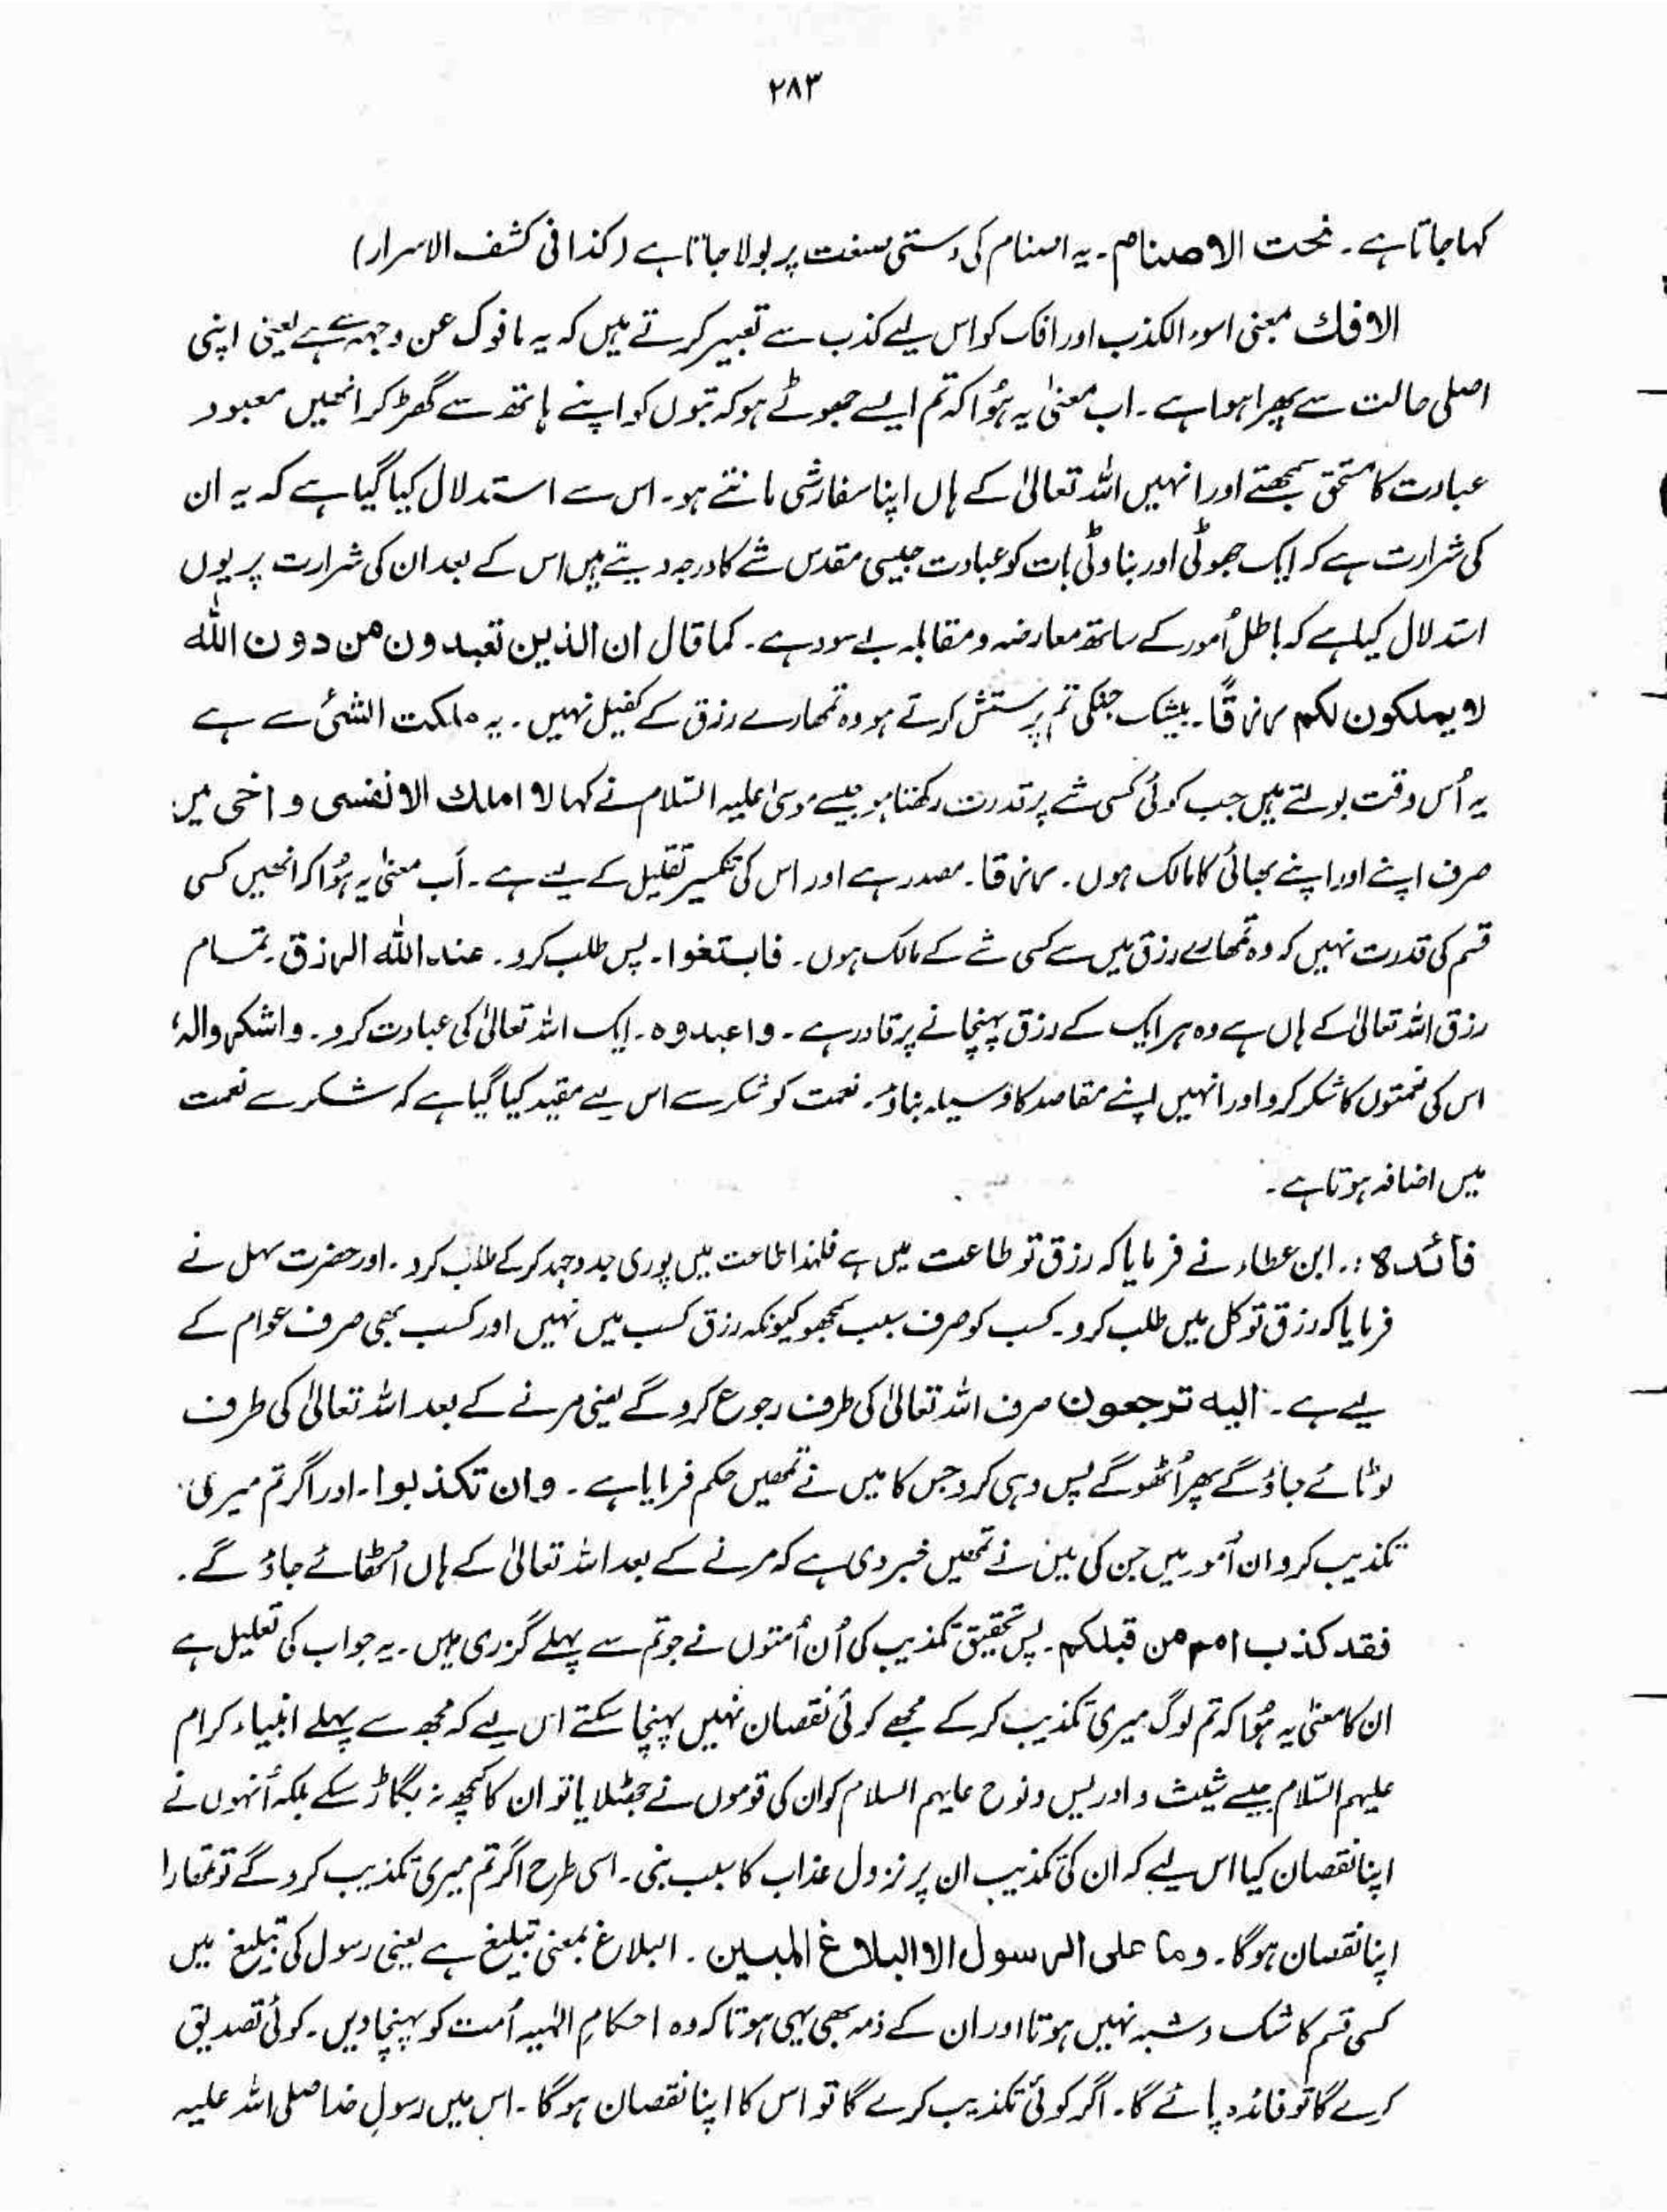 ۲۸۳
کہا جاتا ہے۔ نحت الاصنام۔ یہ اصنام کی دستی صنعت پر بولا جاتا ہے (کذا فی کشف الاسرار)
الافك بمعنی اسوء الکذب اور افک کو اس لیے کذب سے تعبیر کرتے ہیں کہ یہ مافوک عن وجہہ سے ہے یعنی اپنی
اصلی حالت سے پھرا ہوا ہے۔ اب معنیٰ یہ ہُوا کہ تم ایسے جھوٹے ہو کہ بتوں کو اپنے ہاتھ سے گھڑ کر انھیں معبود
عبادت کا مستحق سمجھتے اور انہیں اللہ تعالیٰ کے ہاں اپنا سفارشی مانتے ہو۔ اس سے استدلال کیا گیا ہے کہ یہ ان
کی شرارت ہے کہ ایک جھوٹی اور بناوٹی بات کو عبادت جیسی مقدس شے کا درجہ دیتے ہیں اس کے بعد ان کی شرارت پر یوں
استدلال کیا ہے کہ باطل اُمور کے ساتھ معارضہ و مقابلہ بے سود ہے۔ کما قال ان الذین تعبدون من دون اللہ
لا یملکون لکم رزقًا۔ بیشک جنکی تم پرستش کرتے ہو وہ تمھارے رزق کے کفیل نہیں۔ یہ ملکت الشئ سے ہے
یہ اُس وقت بولتے ہیں جب کوئی کسی شے پر قدرت رکھتا ہو جیسے موسیٰ علیہ السّلام نے کہا لا املك الا نفسی و اخی میں
صرف اپنے اور اپنے بھائی کا مالک ہوں۔ رزقا۔ مصدر ہے اور اس کی تکسیر تقلیل کے لیے ہے۔ اَب معنیٰ یہ ہُوا کہ انھیں کسی
قسم کی قدرت نہیں کہ وہ تمھارے رزق میں سے کسی شے کے مالک ہوں۔ فابتغوا۔ پس طلب کرو۔ عند اللہ الرزق۔ تمام
رزق اللہ تعالیٰ کے ہاں ہے وہ ہر ایک کے رزق پہنچانے پر قادر ہے۔ واعبدوہ۔ ایک اللہ تعالیٰ کی عبادت کرو۔ واشکروالہ،
اس کی نعمتوں کا شکر کرو اور انہیں اپنے مقاصد کا وسیلہ بناؤ۔ نعمت کو شکر سے اس لیے مقید کیا گیا ہے کہ شکر سے نعمت
میں اضافہ ہوتا ہے۔
فائدہ :۔ ابن عطاء نے فرمایا کہ رزق تو طاعت میں ہے فلہٰذا طاعت میں پوری جد وجہد کر کے طلب کرو۔ اور حضرت سہل نے
فرمایا کہ رزق توکل میں طلب کرو۔ کسب کو صرف سبب سمجھو کیونکہ رزق کسب میں نہیں اور کسب بھی صرف عوام کے
لیے ہے۔ الیہ ترجعون صرف اللہ تعالیٰ کی طرف رجوع کرو گے یعنی مرنے کے بعد اللہ تعالیٰ کی طرف
لوٹائے جاؤ گے پھر اُٹھو گے پس وہی کرو جس کا میں نے تمھیں حکم فرمایا ہے۔ وان تکذبوا۔ اور اگر تم میری
تکذیب کرو ان اُمور میں جن کی میں نے تمھیں خبر دی ہے کہ مرنے کے بعد اللہ تعالیٰ کے ہاں اُٹھائے جاؤ گے۔
فقد کذب امم من قبلکم۔ پس تحقیق تکذیب کی اُن اُمتوں نے جو تم سے پہلے گزری ہیں۔ یہ جواب کی تعلیل ہے
ان کا معنیٰ یہ ہُوا کہ تم لوگ میری تکذیب کر کے مجھے کوئی نقصان نہیں پہنچا سکتے اس لیے کہ مجھ سے پہلے انبیاء کرام
علیہم السّلام جیسے شیث و ادریس و نوح علیہم السلام کو ان کی قوموں نے جھٹلایا تو ان کا کچھ نہ بگاڑ سکے بلکہ اُنہوں نے
اپنا نقصان کیا اس لیے کہ ان کی تکذیب ان پر نزول عذاب کا سبب بنی۔ اسی طرح اگر تم میری تکذیب کرو گے تو تمھارا
اپنا نقصان ہوگا۔ وما علی الرسول الا البلاغ المبین۔ البلاغ بمعنی تبلیغ ہے یعنی رسول کی تبلیغ میں
کسی قسم کا شک و شبہ نہیں ہوتا اور ان کے ذمہ بھی یہی ہوتا کہ وہ احکامِ الٰہیہ اُمت کو پہنچا دیں۔ کوئی تصدیق
کرے گا تو فائدہ پائے گا۔ اگر کوئی تکذیب کرے گا تو اس کا اپنا نقصان ہوگا۔ اس میں رسولِ خدا صلی اللہ علیہ